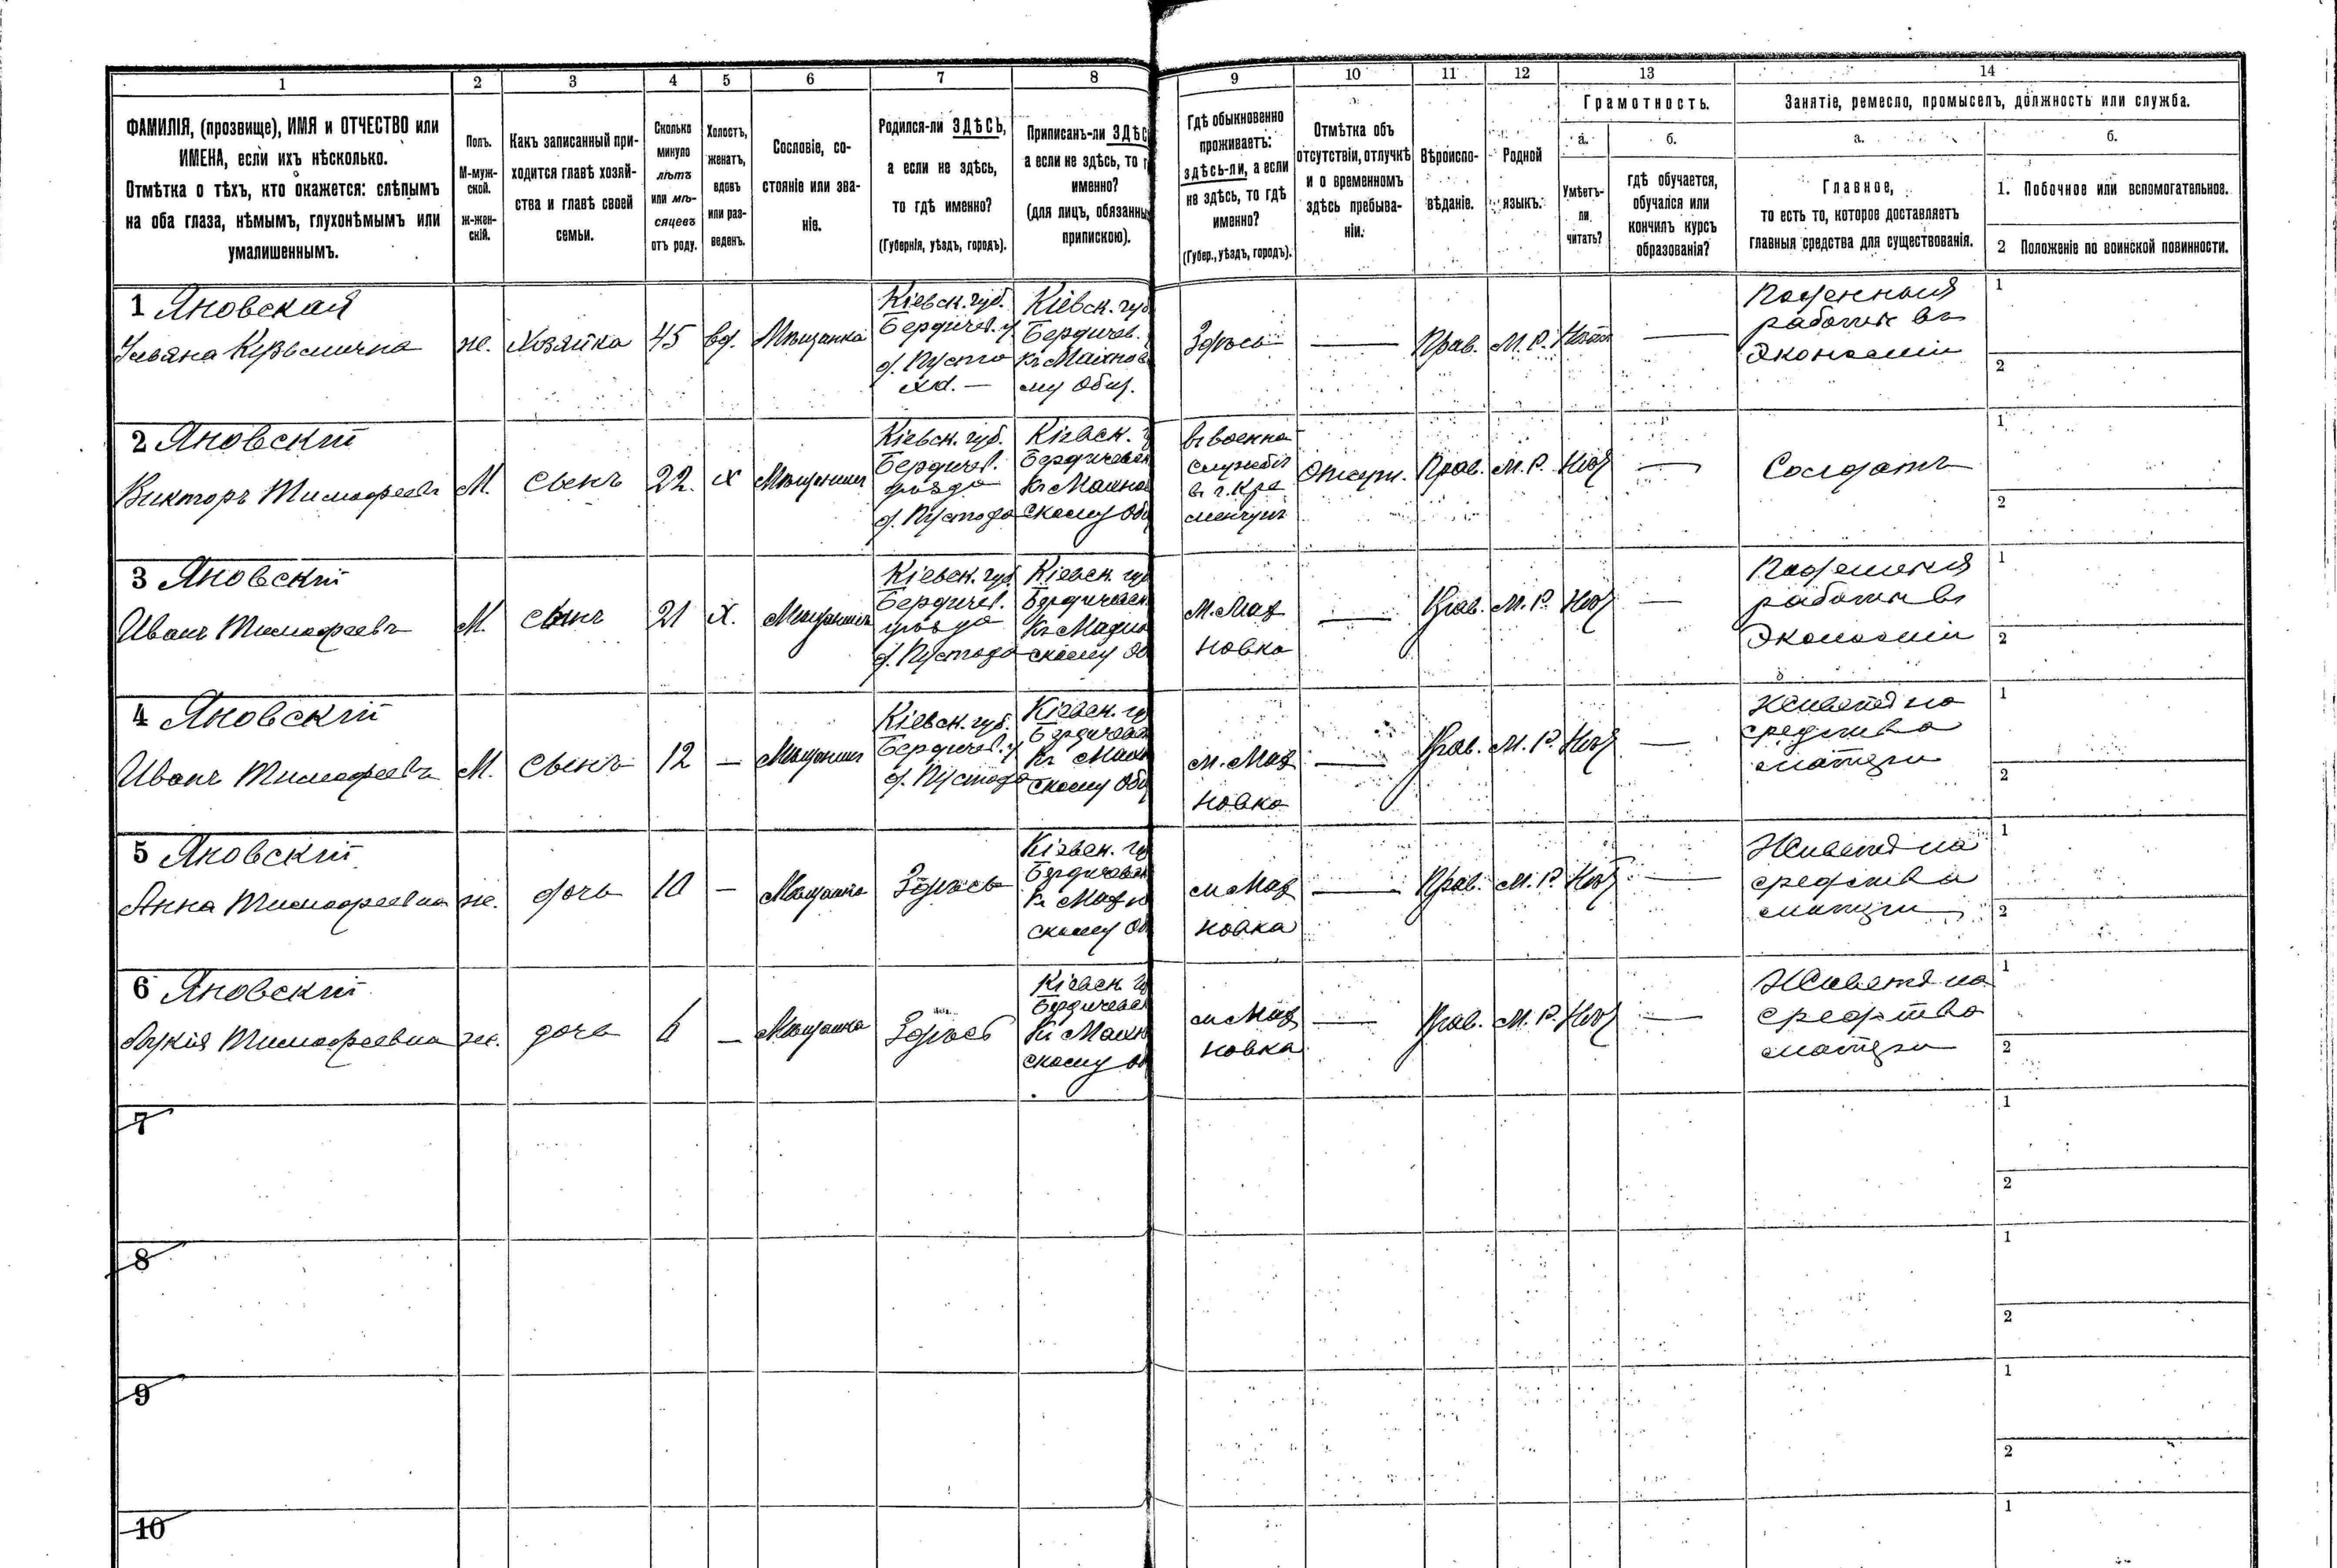 1
2
3
4
5
6
7
8
9
10
11
12
13
14
ФАМИЛІЯ, (прозвище), ИМЯ и ОТЧЕСТВО или
ИМЕНА, если ихъ нѣсколько.
Отмѣтка о тѣхъ, кто окажется: слѣпымъ
на оба глаза, нѣмымъ, глухонѣмымъ или
умалишеннымъ.
Полъ.
М-муж-
ской.
ж-жен-
скій.
Какъ записанный при-
ходится главѣ хозяй-
ства и главѣ своей
семьи.
Сколько
минуло
лѣтъ
или мѣ-
сяцевъ
отъ роду.
Холостъ,
женатъ,
вдовъ
или раз-
веденъ.
Сословіе, со-
стояніе или зва-
ніе.
Родился-ли ЗДѢСЬ,
а если не здѣсь,
то гдѣ именно?
(Губернія, уѣздъ, городъ).
Приписанъ-ли ЗДѢС
а если не здѣсь, то г
именно?
(для лицъ, обязанны
припискою).
Гдѣ обыкновенно
проживаетъ:
здѣсь-ли, а если
не здѣсь, то гдѣ
именно?
(Губер., уѣздъ, городъ).
Отмѣтка объ
отсутствіи, отлучкѣ
и о временномъ
здѣсь пребыва-
ніи.
Вѣроиспо-
вѣданіе.
Родной
языкъ.
Грамотность.
а.
Умѣетъ-
ли
читать?
б.
гдѣ обучается,
обучался или
кончилъ курсъ
образованія?
Занятіе, ремесло, промыселъ, должность или служба.
а.
Главное,
то есть то, которое доставляетъ
главныя средства для существованія.
б.
1. Побочное или вспомогательное.
2 Положеніе по воинской повинности.
1 Яновская
Ульяна Кузьминична
же.
Хозяйка
45
вд.
Мѣщанка
Кіевск. губ.
Бердичев. у
д. Пусто
ха. —
Кіевск. губ
Бердичев.
Къ Махнов
му Общ.
Здѣсь
—
Прав.
М. Р.
Нѣтъ
—
Поденныя
работы въ
Экономіи
1
2
2 Яновскій
Викторъ Тимофеевъ
М.
сынъ
22.
х
Мѣщанинъ
Кіевск. губ.
Бердичев.
уѣзда
д. Пустоха
Кіевск.
Бердичевск
Къ Махно
скому Общ
въ военно
службѣ
в г. Кре
менчугъ
Отсут.
Прав.
М. Р.
Нѣт
—
Солдатъ
1
2
3 Яновскій
Иванъ Тимофеевъ
М.
сынъ
21
х.
Мещанинъ
Кіевск. губ.
Бердичев.
уѣзда
д. Пустоха
Кіевск. губ
Бердичевск
Къ Махно
скому Об
м. Мах
новка
—
Прав.
М. Р.
Нѣт
—
Поденныя
работы въ
Экономіи
1
2
4 Яновскій
Иванъ Тимофеевъ
М.
сынъ
12
—
Мѣщанин
Кіевск. губ.
Бердичев. у
д. Пустоха
Кіевск. гу
Бердичевск
Къ Махн
скому Общ
м. Мах
новка
—
Прав.
М. Р.
Нѣт
—
Живетъ на
средства
матери
1
2
5 Яновскій
Анна Тимофеевна
же.
дочь
10
—
Мѣщанка
Здѣсь
Кіевск. гу
Бердичевск
Къ Махн
скому Об
м Мах
новка
—
Прав.
М. Р.
Нѣт
—
Живетъ на
средства
матери
1
2
6 Яновскій
Лукія Тимофеевна
же.
дочь
6
—
Мѣщанка
Здѣсь
Кіевск. гу
Бердичевск
Къ Махн
скому Об
м Мах
новка
—
Прав.
М. Р.
Нѣт
—
Живетъ на
средства
матери
1
2
7
1
2
8
1
2
9
1
2
10
1